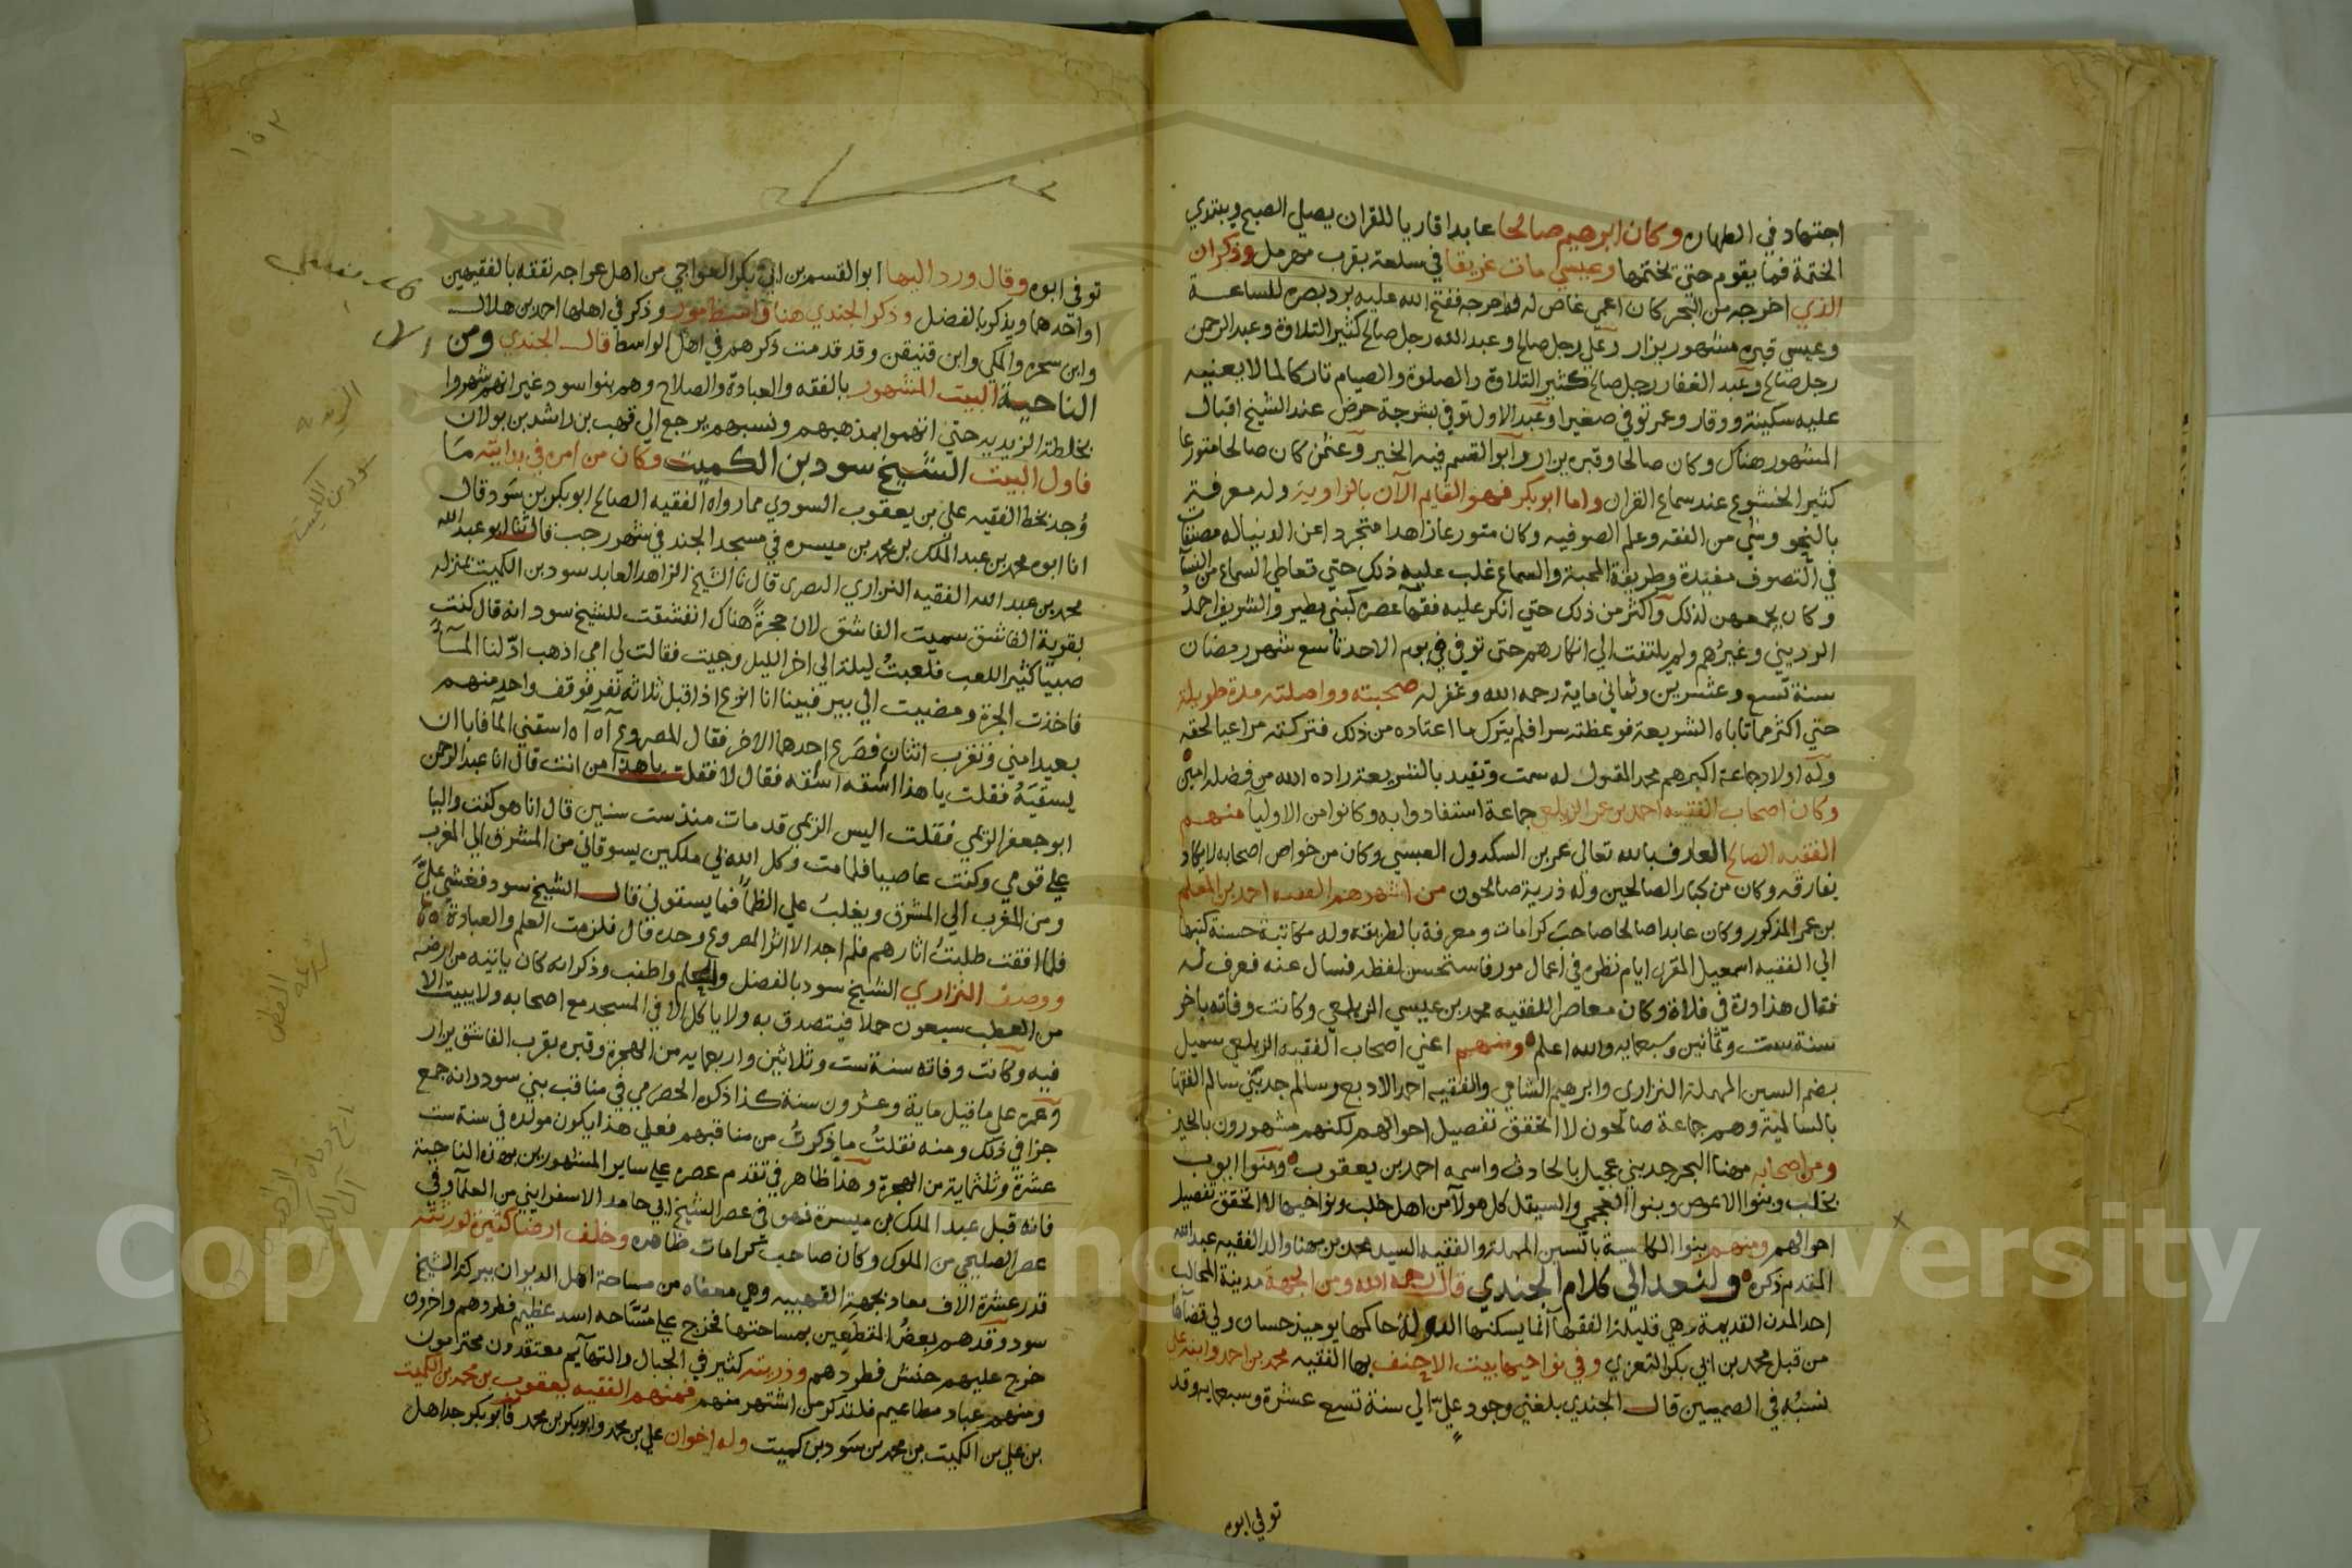 اجتهاد في الطهارة وكان ابرهيم صالحا عابدا قاريا للقران يصلي الصبح ويبتدي
الختمة فما يقوم حتى يختمها وعيسى مات غريقا في سلعة بقرب مرمل وذكر ان
الذي اخرجه من البحر كان اعمى غاص له فاخرجه ففتح الله عليه برد بصره للساعة
وعيسى قبره مشهور يزار وعلي رجل صالح وعبد الله رجل صالح كثير التلاوة وعبد الرحمن
رجل صالح وعبد الغفار رجل صالح كثير التلاوة والصلوة والصيام تاركا لما لا يعنيه
عليه سكينة ووقار وعمر توفي صغيرا وعبد الاول توفي بشرجة حرض عند الشيخ اقبال
المشهور هناك وكان صالحا وقبره يزار وابو القسم فيه الخير وعثمن كان صالحا متورعا
كثير الخشوع عند سماع القران واما ابو بكر فهو القايم الآن بالزاوية وله معرفة
بالنحو وشي من الفقه وعلم الصوفيه وكان متورعا زاهدا متجردا عن الدنيا له مصنفات
في التصوف مفيدة وطريقة المحبة والسماع غلب عليه ذلك حتى تعاطى السماع من النسآ
وكان يجمعهن لذلك واكثر من ذلك حتى انكر عليه فقهآ عصره كبني مطير والشريف احمد
الرديني وغيرهم ولم يلتفت الى انكارهم حتى توفي في يوم الاحد تاسع شهر رمضان
سنة تسع وعشرين وثماني ماية رحمه الله وغفر له صحبته وواصلته مدة طويلة
حتى اكثر مما تاباه الشريعة فوعظته سرا فلم يترك ما اعتاده من ذلك فتركته مراعيا لحقه
وله اولاد جماعة اكبرهم محمد المقبول له سمت وتقيد بالشريعة زاده الله من فضله امين
وكان اصحاب الفقيه احمد بن عمر الزيلعي جماعة استفادوا به وكانوا من الاوليآ منهم
الفقيه الصالح العارف بالله تعالى عمر بن السكدول العبسي وكان من خواص اصحابه لا يكاد
يفارقه وكان من كبار الصالحين وله ذرية صالحون من اشهرهم الفقيه احمد بن المعلم
بن عمر المذكور وكان عابدا صالحا صاحب كرامات ومعرفة بالطريقة وله مكاتبة حسنة كتبها
الى الفقيه اسمعيل المقري ايام نظره في اعمال مور فاستحسن لفظه فسال عنه فعرف له
فقال هذا درة في فلاة وكان معاصرا للفقيه محمد بن عيسى الزيلعي وكانت وفاته باخر
سنة ست وثمانين وسبعمايه والله اعلم ومنهم اعني اصحاب الفقيه الزيلعي سميل
بضم السين المهملة النزاري وابرهيم الشامي والفقيه احمد الادبع وسالم جد بني سالم الفقها
بالسالمية وهم جماعة صالحون لا اتحقق تفصيل احوالهم لكنهم مشهورون بالخير
ومن اصحابه مهنا البحر جد بني عجيل بالحادث واسمه احمد بن يعقوب وبنوا ايوب
بخلب وبنوا الاعوص وبنوا العجمي والسيقل كل هولآ من اهل خلب ونواحيها لا اتحقق تفصيل
احوالهم ومنهم بنوا بالسين المهملة والفقيه السيد محمد بن مهنا والد الفقيه عبد الله
المقدم ذكره ولنعد الى كلام الجندي قال رحمه الله ومن الجهة مدينة المحالب
احد المدن القديمة وهي قليلة الفقهآ انما يسكنها الدولة حاكمها يوميذ حسان ولي قضآها
من قبل محمد بن ابي بكر التعزي وفي نواحيها بيت الاحنف بها الفقيه محمد بن احمد وابنه علي
نسبه في الصميين قال الجندي بلغني وجود علي الى سنة تسع عشرة وسبعمايه وقد
توفي ابوه
١٥٣
توفي ابوه وقال ورد اليها ابو القسم بن ابي بكر العواجي من اهل عواجه تفقه بالفقيهين
او احدهما ويذكر بالفضل وذكر الجندي هنا واسط مور وذكر في اهلها احمد بن هلال
وابن سحره والمكي وابن قنيقن وقد قدمت ذكرهم في اهل الواسط قال الجندي ومن
الناحية البيت المشهور بالفقه والعبادة والصلاح وهم بنوا سود غير انهم شهروا
بخلطة الزيديه حتى اتهموا بمذهبهم ونسبهم يرجع الى قهب بن راشد بن بولان
فاول البيت الشيخ سود بن الكميت وكان من امره في بدايته مَا
وُجد بخط الفقيه علي بن يعقوب السودي مما رواه الفقيه الصالح ابو بكر بن سود قال
انا ابوه محمد بن عبد الملك بن محمد بن ميسره في مسجد الجند في شهر رجب قال ثنا ابو عبد الله
محمد بن عبد الله الفقيه النزاري البصري قال ثنا الشيخ الزاهد العابد سود بن الكميت بمنزله
بقرية الفاشق سميت الفاشق لان حجرة هناك انفشقت للشيخ سود انه قال كنت
صبيا كثير اللعب فلعبتُ ليلة الى اخر الليل وجيت فقالت لي امي اذهب ادّ لنا المآ
فاخذت الجرة ومضيت الى بير فبينا انا انزع اذ اقبل ثلاثه نفر فوقف واحد منهم
بعيدا مني وتقرب اثنان فصرع احدهما الاخر فقال المصروع آه آه اسقني المآ فابا ان
يسقيَهُ فقلت يا هذا اسقه اسقه فقال لا فقلت يا هذا من انت قال انا عبد الرحمن
ابو جعفر الزمي فقلت اليس الزمي قد مات منذ ست سنين قال انا هو كنت واليا
على قومي وكنت عاصيا فلما مت وكل الله بي ملكين يسوقاني من المشرق الى المغرب
ومن المغرب الى المشرق ويغلبُ علي الظمأ فما يسقوني قال الشيخ سود فغشي عليَّ
فلما افقت طلبتُ اثارهم فلم اجد الا اثر المصروع وحده قال فلزمت العلم والعبادة
ووصف النزاري الشيخ سود بالفضل والعلم واطنب وذكر انه كان ياتيه من ارضه
من العطب سبعون حملا فيتصدق به ولا ياكل الا في المسجد مع اصحابه ولا يبيت الا
فيه وكانت وفاته سنة ست وثلاثين واربعمايه من الهجرة وقبره بقرب الفاشق يزار
وعمره على ما قيل ماية وعشرون سنة كذا ذكره الحضرمي في مناقب بني سود وانه جمع
جزا في ذلك ومنه نقلتُ ما ذكرتُ من مناقبهم فعلى هذا يكون مولده في سنة ست
عشرة وثلثماية من الهجرة وهذا ظاهر في تقدم عصره على ساير المشهورين بهذه الناحية
فانه قبل عبد الملك بن ميسرة فهو في عصر الشيخ ابي حامد الاسفرايني من العلمآ وفي
عصر الصليحي من الملوك وكان صاحب كرامات ظاهره وخلف ارضا كثيرة لورثته
قدر عشرة الاف معاد بجهة القهبيه وهي معفاه من مساحة اهل الديوان ببركة الشيخ
سود وقدهم بعضُ المقطعين بمساحتها فخرج على مُسّاحه اسد عظيم فطردهم واخرون
خرج عليهم حنش فطردهم وذريته كثير في الجبال والتهآيم معتقدون محترمون
ومنهم عباد مطاعيم فلنذكر من اشتهر منهم فمنهم الفقيه يعقوب بن محمد بن الكميت
بن علي بن الكميت بن محمد بن سود بن كميت وله اخوان علي بن محمد وابو بكر بن محمد فابو بكر جد اهل
سود بن الكميت
Copyright © King Saud University